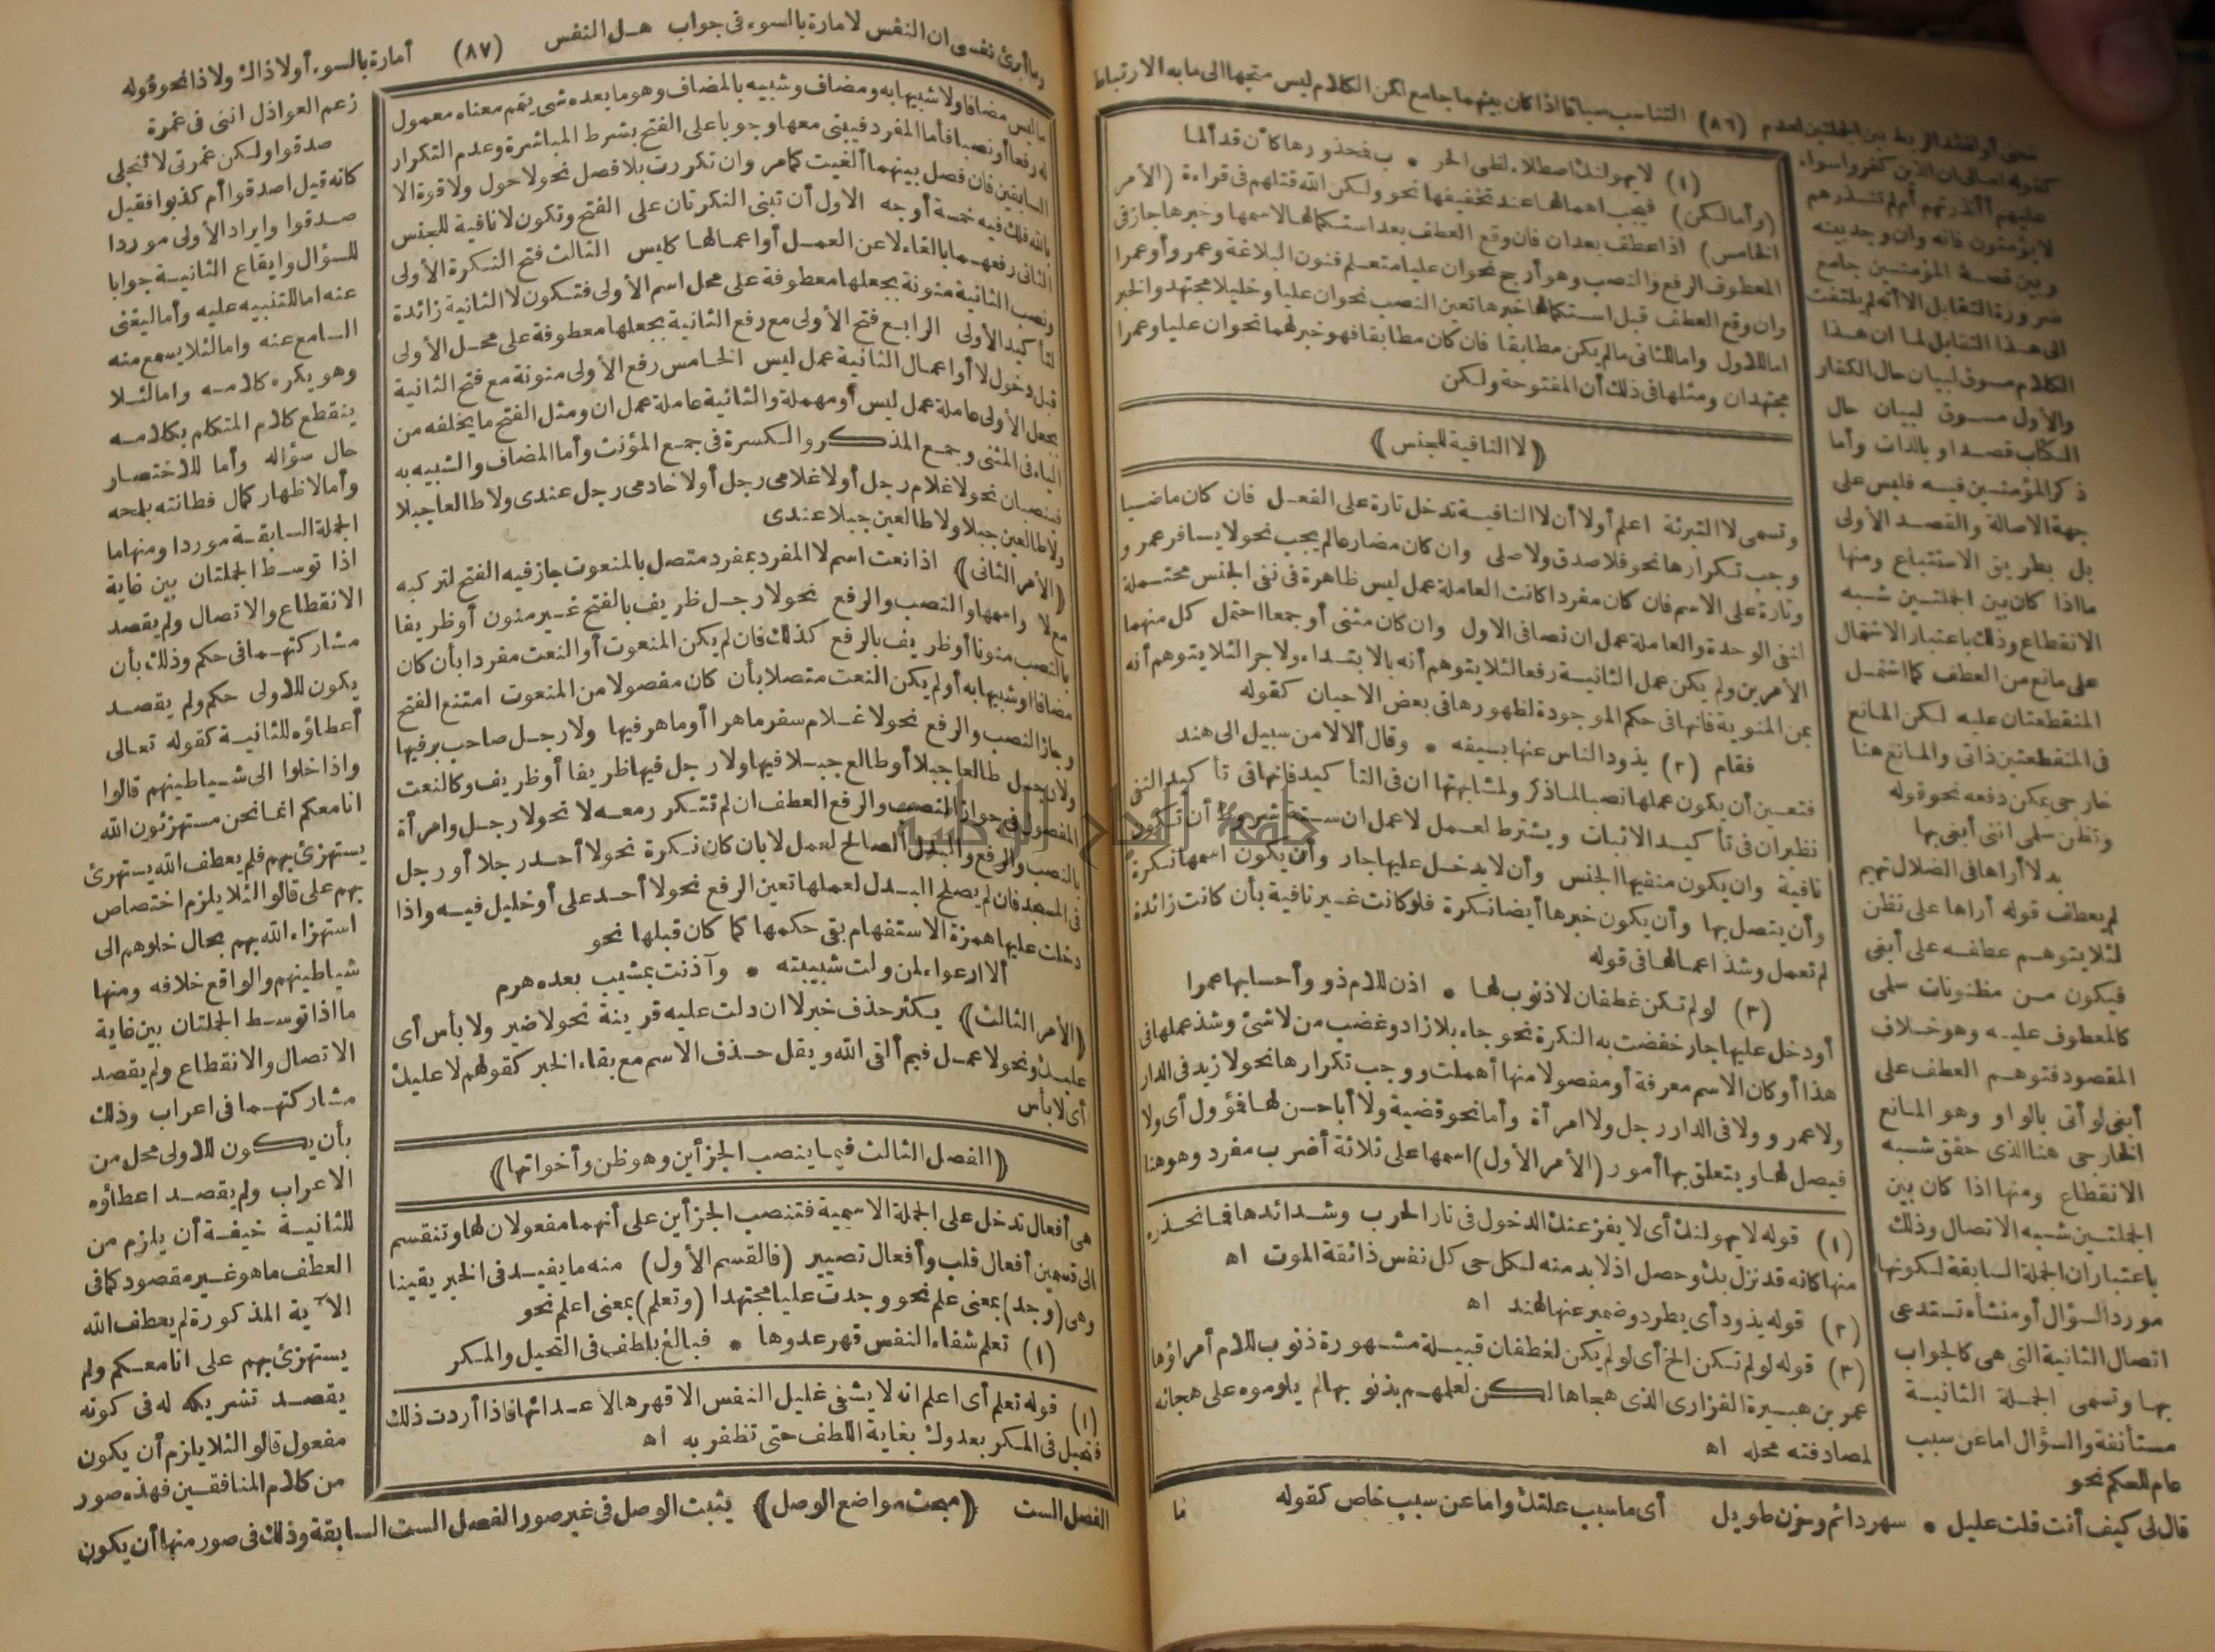 معنى أو لفقد الربط بين الجملتين لعدم (٨٦) التناسب سياقا اذا كان بينهما جامع لكن الكلام ليس متجها الى ما به الارتباط
كقوله تعالى ان الذين كفروا سواء
عليهم أأنذرتهم أم لم تنذرهم
لا يؤمنون فانه وان وجد بينه
وبين قصة المؤمنين جامع
ضرورة التقابل الا أنه لم يلتفت
الى هذا التقابل لما ان هذا
الكلام مسوق لبيان حال الكفار
والأول مسوق لبيان حال
الكتاب قصدا وبالذات وأما
ذكر المؤمنين فيه فليس على
جهة الاصالة والقصد الأولى
بل بطريق الاستتباع ومنها
ما اذا كان بين الجملتين شبه
الانقطاع وذلك باعتبار الاشتمال
على مانع من العطف كما اشتمل
المنقطعتان عليه لكن المانع
فى المنقطعتين ذاتى والمانع هنا
خارجى يمكن دفعه نحو قوله
وتظن سلمى اننى أبغى بها
بدلا أراها فى الضلال تهيم
لم يعطف قوله أراها على تظن
لئلا يتوهم عطفه على أبغى
فيكون من مظنونات سلمى
كالمعطوف عليه وهو خلاف
المقصود فتوهم العطف على
أبغى لو أتى بالواو وهو المانع
الخارجى هنا الذى حقق شبه
الانقطاع ومنها اذا كان بين
الجملتين شبه الاتصال وذلك
باعتبار ان الجملة السابقة لكونها
مورد السؤال أو منشأه تستدعى
اتصال الثانية التى هى كالجواب
بها وتسمى الجملة الثانية
مستأنفة والسؤال اما عن سبب
عام للحكم نحو
قال لى كيف أنت قلت عليل * سهر دائم وحزن طويل أى ما سبب علتك واما عن سبب خاص كقوله وما
(١) لا يهولنك اصطلاء لظى الحر * ب فمحذورها كأن قد ألما
(وأما لكن) فيجب اهمالها عند تخفيفها نحو ولكن الله قتلهم فى قراءة (الأمر
الخامس) اذا عطف بعد ان فان وقع العطف بعد استكمالها لاسمها وخبرها جاز فى
المعطوف الرفع والنصب وهو أرجح نحو ان عليا متعلم فنون البلاغة وعمرو أو عمرا
وان وقع العطف قبل استكمالها خبرها تعين النصب نحو ان عليا وخليلا مجتهد والخبر
اما للاول واما للثانى ما لم يكن مطابقا فان كان مطابقا فهو خبر لهما نحو ان عليا وعمرا
مجتهدان ومثلها فى ذلك أن المفتوحة ولكن
﴿لا النافية للجنس﴾
وتسمى لا التبرئة اعلم أولا أن لا النافية تدخل تارة على الفعل فان كان ماضيا
وجب تكرارها نحو فلا صدق ولا صلى وان كان مضارعا لم يجب نحو لا يسافر عمرو
وتارة على الاسم فان كان مفردا كانت العاملة عمل ليس ظاهرة فى نفى الجنس محتملة
لنفى الوحدة والعاملة عمل ان نصا فى الاول وان كان مثنى أو جمعا احتمل كل منهما
الأمرين ولم يكن عمل الثانية رفعا لئلا يتوهم أنه بالابتداء ولا جرا لئلا يتوهم أنه
بمن المنوية فانها فى حكم الموجودة لظهورها فى بعض الاحيان كقوله
فقام (٢) يذود الناس عنها بسيفه * وقال ألا لا من سبيل الى هند
فتعين أن يكون عملها نصبا لما ذكر ولمشابهتها ان فى التأكيد فانها فى تأكيد النفى
نظير ان فى تأكيد الاثبات ويشترط لعمل لا عمل ان ستة شروط أن تكون
نافية وان يكون منفيها الجنس وأن لا يدخل عليها جار وأن يكون اسمها نكرة
وأن يتصل بها وأن يكون خبرها أيضا نكرة فلو كانت غير نافية بأن كانت زائدة
لم تعمل وشذ اعمالها فى قوله
(٣) لو لم تكن غطفان لا ذنوب لها * اذن للام ذوو أحسابها عمرا
أو دخل عليها جار خفضت به النكرة نحو جاء بلا زاد وغضب من لا شئ وشذ عملها فى
هذا أو كان الاسم معرفة أو مفصولا منها أهملت ووجب تكرارها نحو لا زيد فى الدار
ولا عمرو ولا فى الدار رجل ولا امرأة وأما نحو قضية ولا أبا حسن لها فمؤول أى ولا
فيصل لها ويتعلق بها أمور (الأمر الأول) اسمها على ثلاثة أضرب مفرد وهو هنا
(١) قوله لا يهولنك أى لا يفزعنك الدخول فى نار الحرب وشدائدها فما تحذره
منها كانه قد نزل بك وحصل اذ لا بد منه لكل حى كل نفس ذائقة الموت اه
(٢) قوله يذود أى يطرد وضمير عنها لهند اه
(٣) قوله لو لم تكن الخ أى لو لم يكن لغطفان قبيلة مشهورة ذنوب للام أمراؤها
عمر بن هبيرة الفزارى الذى هجاها لكن لعلمهم بذنوبها لم يلوموه على هجائه
لمصادفته محله اه
وما أبرئ نفسى ان النفس لامارة بالسوء فى جواب هل النفس (٨٧) أمارة بالسوء أولا ذاك ولا ذا نحو قوله
ما ليس مضافا ولا شبيها به ومضاف وشبيه بالمضاف وهو ما بعده شئ يتمم معناه معمول
له رفعا أو نصبا فأما المفرد فيبنى معها وجوبا على الفتح بشرط المباشرة وعدم التكرار
السابقين فان فصل بينهما ألغيت كما مر وان تكررت بلا فصل نحو لا حول ولا قوة الا
بالله فلك فيه خمسة أوجه الاول أن تبنى النكرتان على الفتح وتكون لا نافية للجنس
الثانى رفعهما بالغاء لا عن العمل أو اعمالها كليس الثالث فتح النكرة الأولى
ونصب الثانية منونة بجعلها معطوفة على محل اسم الأولى فتكون لا الثانية زائدة
لتأكيد الأولى الرابع فتح الأولى مع رفع الثانية بجعلها معطوفة على محل الأولى
قبل دخول لا أو اعمال الثانية عمل ليس الخامس رفع الأولى منونة مع فتح الثانية
بجعل الأولى عاملة عمل ليس أو مهملة والثانية عاملة عمل ان ومثل الفتح ما يخلفه من
الياء فى المثنى وجمع المذكر والكسرة فى جمع المؤنث وأما المضاف والشبيه به
فينصبان نحو لا غلام رجل أو لا غلامى رجل أو لا خادمى رجل عندى ولا طالعا جبلا
ولا طالعين جبلا ولا طالعين جبلا عندى
﴿الأمر الثانى﴾ اذا نعت اسم لا المفرد بمفرد متصل بالمنعوت جاز فيه الفتح لتركبه
مع لا واسمها والنصب والرفع نحو لا رجل ظريف بالفتح غير منون أو ظريفا
بالنصب منونا أو ظريف بالرفع كذلك فان لم يكن المنعوت أو النعت مفردا بأن كان
مضافا أو شبيها به أو لم يكن النعت متصلا بأن كان مفصولا من المنعوت امتنع الفتح
وجاز النصب والرفع نحو لا غلام سفر ماهرا أو ماهر فيها ولا رجل صاحب بر فيها
ولا رجل طالعا جبلا أو طالع جبلا فيها ولا رجل فيها ظريفا أو ظريف وكالنعت
المفصول فى جواز النصب والرفع العطف ان لم تتكرر معه لا نحو لا رجل وامرأة
بالنصب والرفع والبدل الصالح لعمل لا بان كان نكرة نحو لا أحد رجلا أو رجل
فى المسجد فان لم يصلح البدل لعملها تعين الرفع نحو لا أحد على أو خليل فيه واذا
دخلت عليها همزة الاستفهام بقى حكمها كما كان قبلها نحو
ألا ارعواء لمن ولت شبيبته * وآذنت بمشيب بعده هرم
﴿الأمر الثالث﴾ يكثر حذف خبر لا ان دلت عليه قرينة نحو لا ضير ولا بأس أى
عليك ونحو لا عمل فيم ألقى الله ويقل حذف الاسم مع بقاء الخبر كقولهم لا عليك
أى لا بأس
﴿الفصل الثالث فيما ينصب الجزأين وهو ظن وأخواتها﴾
هى أفعال تدخل على الجملة الاسمية فتنصب الجزأين على أنهما مفعولان لها وتنقسم
الى قسمين أفعال قلب وأفعال تصيير (فالقسم الأول) منه ما يفيد فى الخبر يقينا
وهى (وجد) بمعنى علم نحو وجدت عليا مجتهدا (وتعلم) بمعنى اعلم نحو
(١) تعلم شفاء النفس قهر عدوها * فبالغ بلطف فى التحيل والمكر
(١) قوله تعلم أى اعلم انه لا يشفى غليل النفس الا قهرها لأعدائها فاذا أردت ذلك
فتحيل فى المكر بعدوك بغاية اللطف حتى تظفر به اه
زعم العواذل اننى فى غمرة
صدقوا ولكن غمرتى لا تنجلى
كانه قيل اصدقوا أم كذبوا فقيل
صدقوا وايراد الأولى موردا
للسؤال وايقاع الثانية جوابا
عنه اما للتنبيه عليه وأما ليغنى
السامع عنه واما لئلا يسمع منه
وهو يكره كلامه واما لئلا
ينقطع كلام المتكلم بكلامه
حال سؤاله وأما للاختصار
وأما لاظهار كمال فطانته بلمحه
الجملة السابقة موردا ومنها ما
اذا توسط الجملتان بين غاية
الانقطاع والاتصال ولم يقصد
مشاركتهما فى حكم وذلك بأن
يكون للاولى حكم ولم يقصد
أعطاؤه للثانية كقوله تعالى
واذا خلوا الى شياطينهم قالوا
انا معكم انما نحن مستهزئون الله
يستهزئ بهم فلم يعطف الله يستهزئ
بهم على قالوا لئلا يلزم اختصاص
استهزاء الله بهم بحال خلوهم الى
شياطينهم والواقع خلافه ومنها
ما اذا توسط الجملتان بين غاية
الاتصال والانقطاع ولم يقصد
مشاركتهما فى اعراب وذلك
بأن يكون للاولى محل من
الاعراب ولم يقصد اعطاؤه
للثانية خيفة أن يلزم من
العطف ما هو غير مقصود كما فى
الآية المذكورة لم يعطف الله
يستهزئ بهم على انا معكم ولم
يقصد تشريكه له فى كونه
مفعول قالوا لئلا يلزم أن يكون
من كلام المنافقين فهذه صور
الفصل الست ﴿مبحث مواضع الوصل﴾ يثبت الوصل فى غير صور الفصل الست السابقة وذلك فى صور منها أن يكون
جامعة النجاح الوطنية